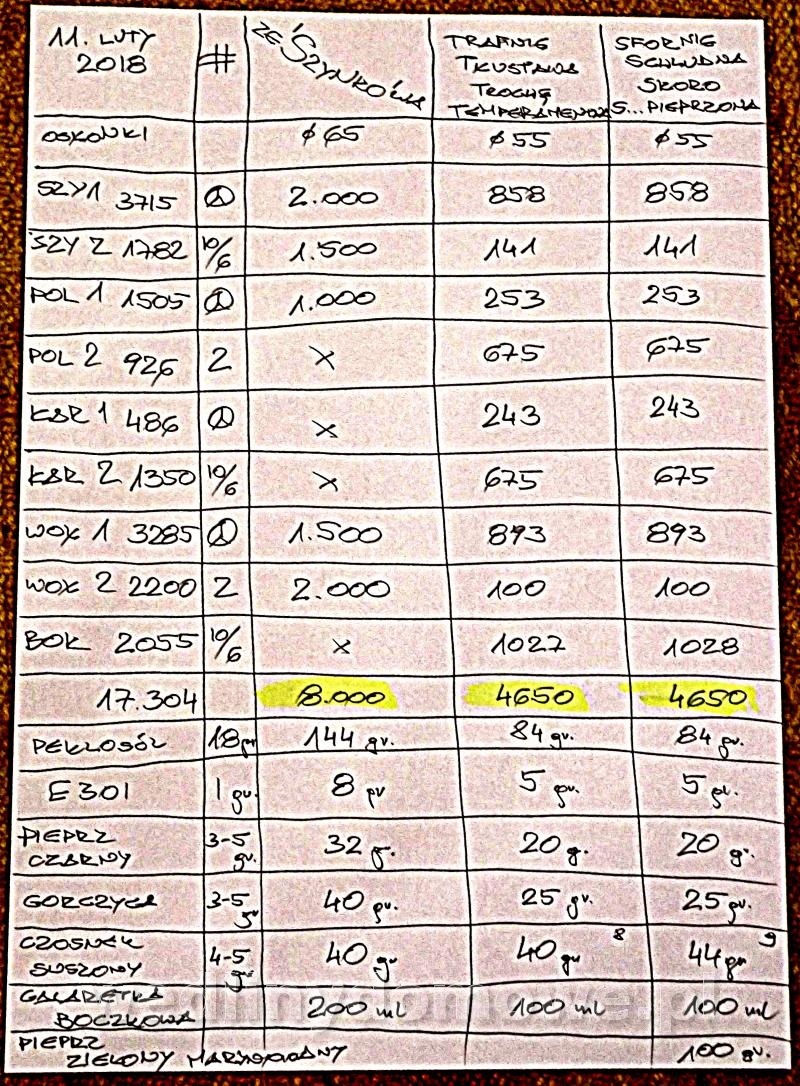 11. LUTY 2018 # ZE SZYNKÓWIA TRAFNIE TŁUSTAWA TROCHĘ TEMPERAMENTNA SFORNIE SCHLUDNA SKORO S...PIEPRZONA
OSŁONKI ϕ65 ϕ55 ϕ55
SZY 1 3715 ① 2.000 858 858
SZY 2 1782 10/6 1.500 141 141
POL 1 1505 ① 1.000 253 253
POL 2 926 2 X 675 675
K&R 1 486 ① X 243 243
K&R 2 1350 10/6 X 675 675
WOŁ 1 3285 ① 1.500 893 893
WOŁ 2 2200 2 2.000 100 100
BOK 2055 10/6 X 1027 1028
17.304 8.000 4650 4650
PEKLOSÓL 18 gr 144 gr. 84 gr. 84 gr.
E 301 1 gr. 8 gr 5 gr. 5 gr.
PIEPRZ CZARNY 3-5 gr. 32 g. 20 g. 20 gr.
GORCZYCA 3-5 gr 40 gr. 25 gr. 25 gr.
CZOSNEK SUSZONY 4-5 gr 40 gr 40 gr 8 44 gr 9
GALARETKA BOCZKOWA 200 ml 100 ml 100 ml
PIEPRZ ZIELONY MARYNOWANY 100 gr.